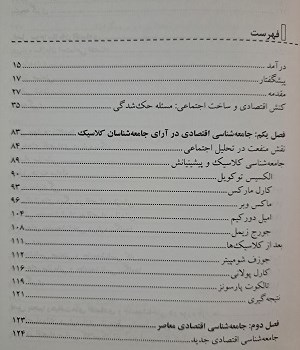 فهرست
درآمد ۱۵
پیشگفتار ۱۷
مقدمه ۲۷
کنش اقتصادی و ساخت اجتماعی: مسئله حک‌شدگی ۳۵
فصل یکم: جامعه‌شناسی اقتصادی در آرای جامعه‌شناسان کلاسیک ۸۳
نقش منفعت در تحلیل اجتماعی ۸۴
جامعه‌شناسی کلاسیک و پیشینیانش ۸۹
الکسیس توکویل ۹۰
کارل مارکس ۹۳
ماکس وبر ۹۶
امیل دورکیم ۱۰۴
جورج زیمل ۱۰۸
بعد از کلاسیک‌ها ۱۱۱
جوزف شومپیتر ۱۱۲
کارل پولانی ۱۱۶
تالکوت پارسونز ۱۱۹
نتیجه‌گیری ۱۲۱
فصل دوم: جامعه‌شناسی اقتصادی معاصر ۱۲۳
جامعه‌شناسی اقتصادی جدید ۱۲۴